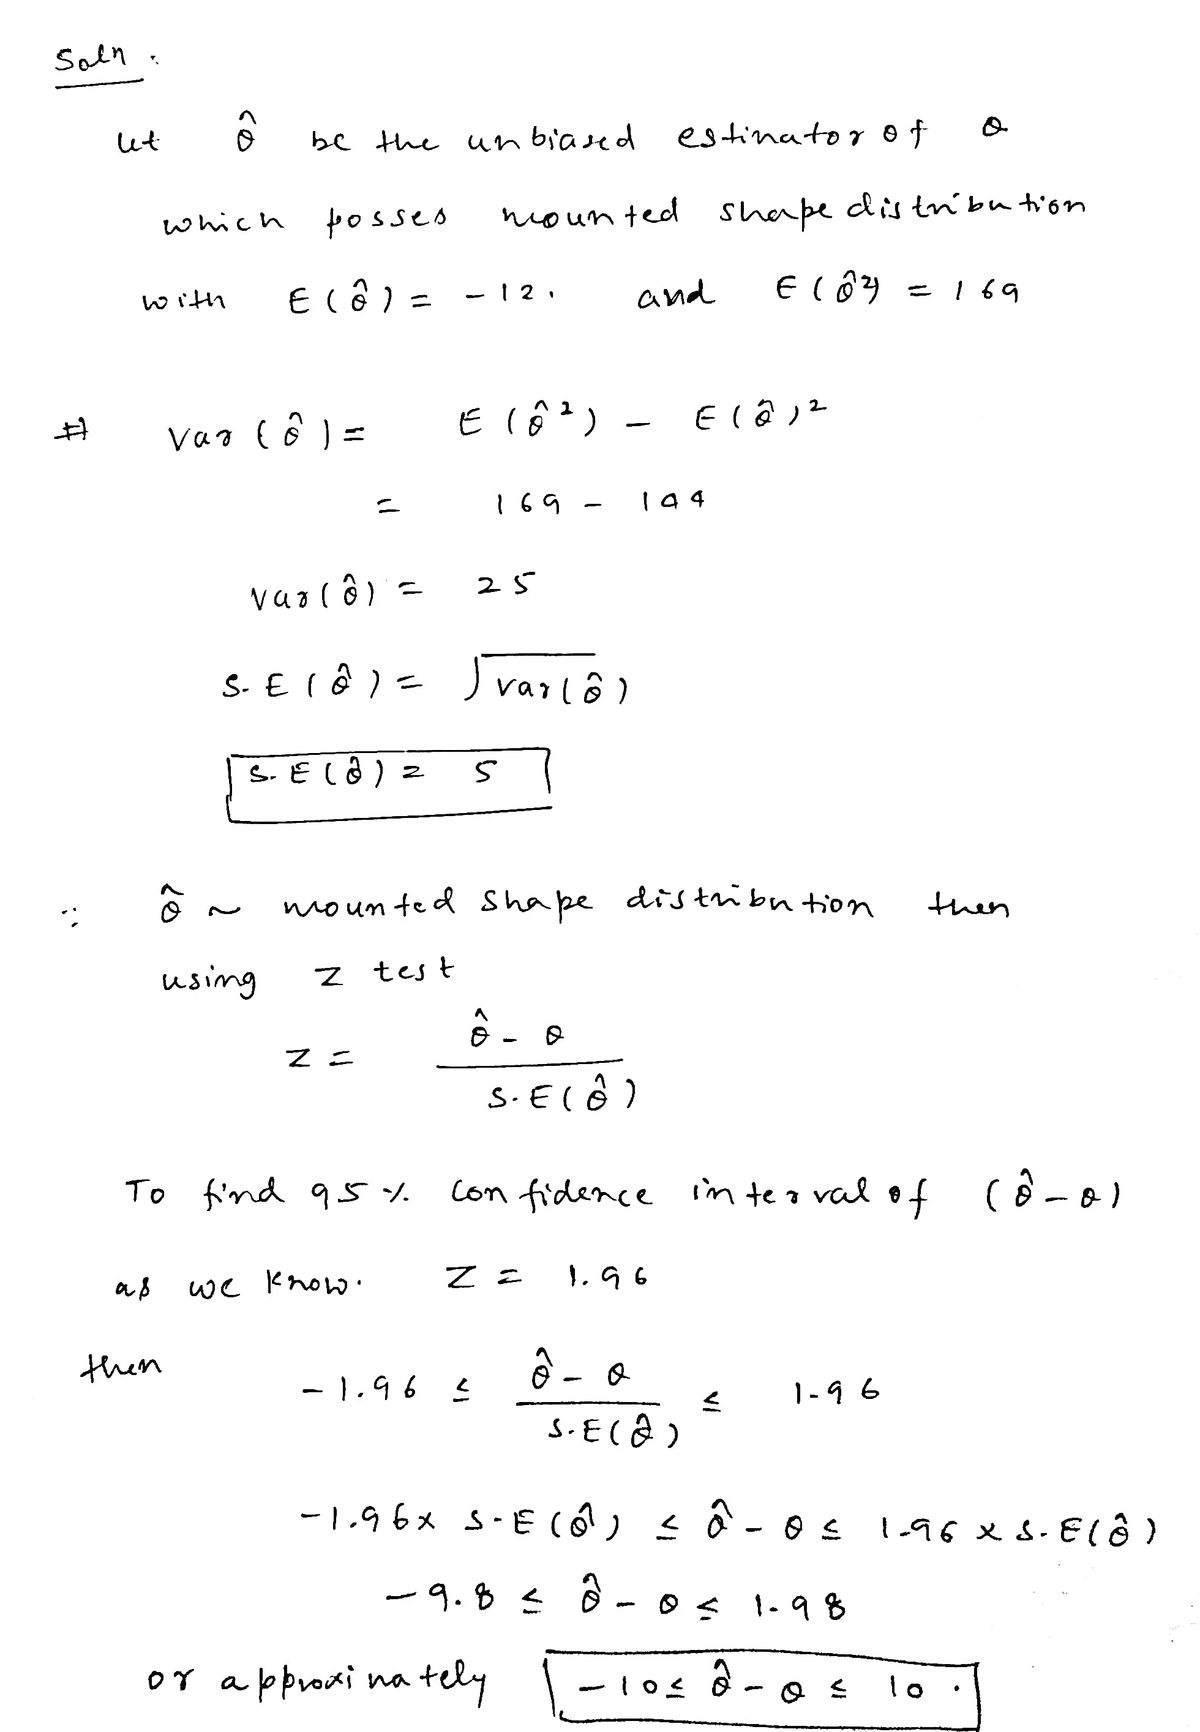 Soln :
let θ̂ be the unbiased estinator of θ
which posses mounted shape distribution
with E(θ̂) = -12. and E(θ̂²) = 169
# Var(θ̂) = E(θ̂²) - E(θ̂)²
= 169 - 144
Var(θ̂) = 25
S.E(θ̂) = √var(θ̂)
S.E(θ̂) = 5
∵ θ̂ ~ mounted shape distribution then
using Z test
Z = (θ̂ - θ) / S.E(θ̂)
To find 95 % confidence interval of (θ̂ - θ)
as we know. Z = 1.96
then -1.96 ≤ (θ̂ - θ) / S.E(θ̂) ≤ 1.96
-1.96 × S.E(θ̂) ≤ θ̂ - θ ≤ 1.96 × S.E(θ̂)
-9.8 ≤ θ̂ - θ ≤ 1.98
or approxinately -10 ≤ θ̂ - θ ≤ 10.